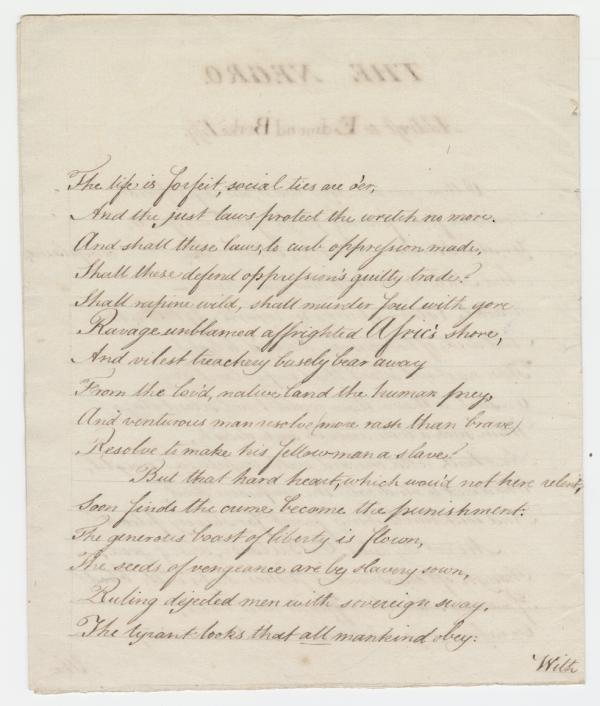 The life is forfeit, social ties are o'er,
And the just laws protect the wretch no more.
And shall these laws, to curb oppression made,
Shall these defend oppression's guilty trade?
Shall rapine wild, shall murder foul with gore
Ravage unblamed affrighted Afric's shore,
And vilest treachery basely bear away
From the lov'd, native land the human prey,
And venturous man resolve (more rash than brave)
Resolve to make his fellow man a slave?
But that hard heart, which wou'd not here relent,
Soon finds the crime become the punishment:
The generous boast of liberty is flown,
The seeds of vengeance are by slavery sown,
Ruling dejected men with sovereign sway,
The tyrant looks that all mankind obey:
With
THE NEGRO.
Address to Edmund Burke Esq.